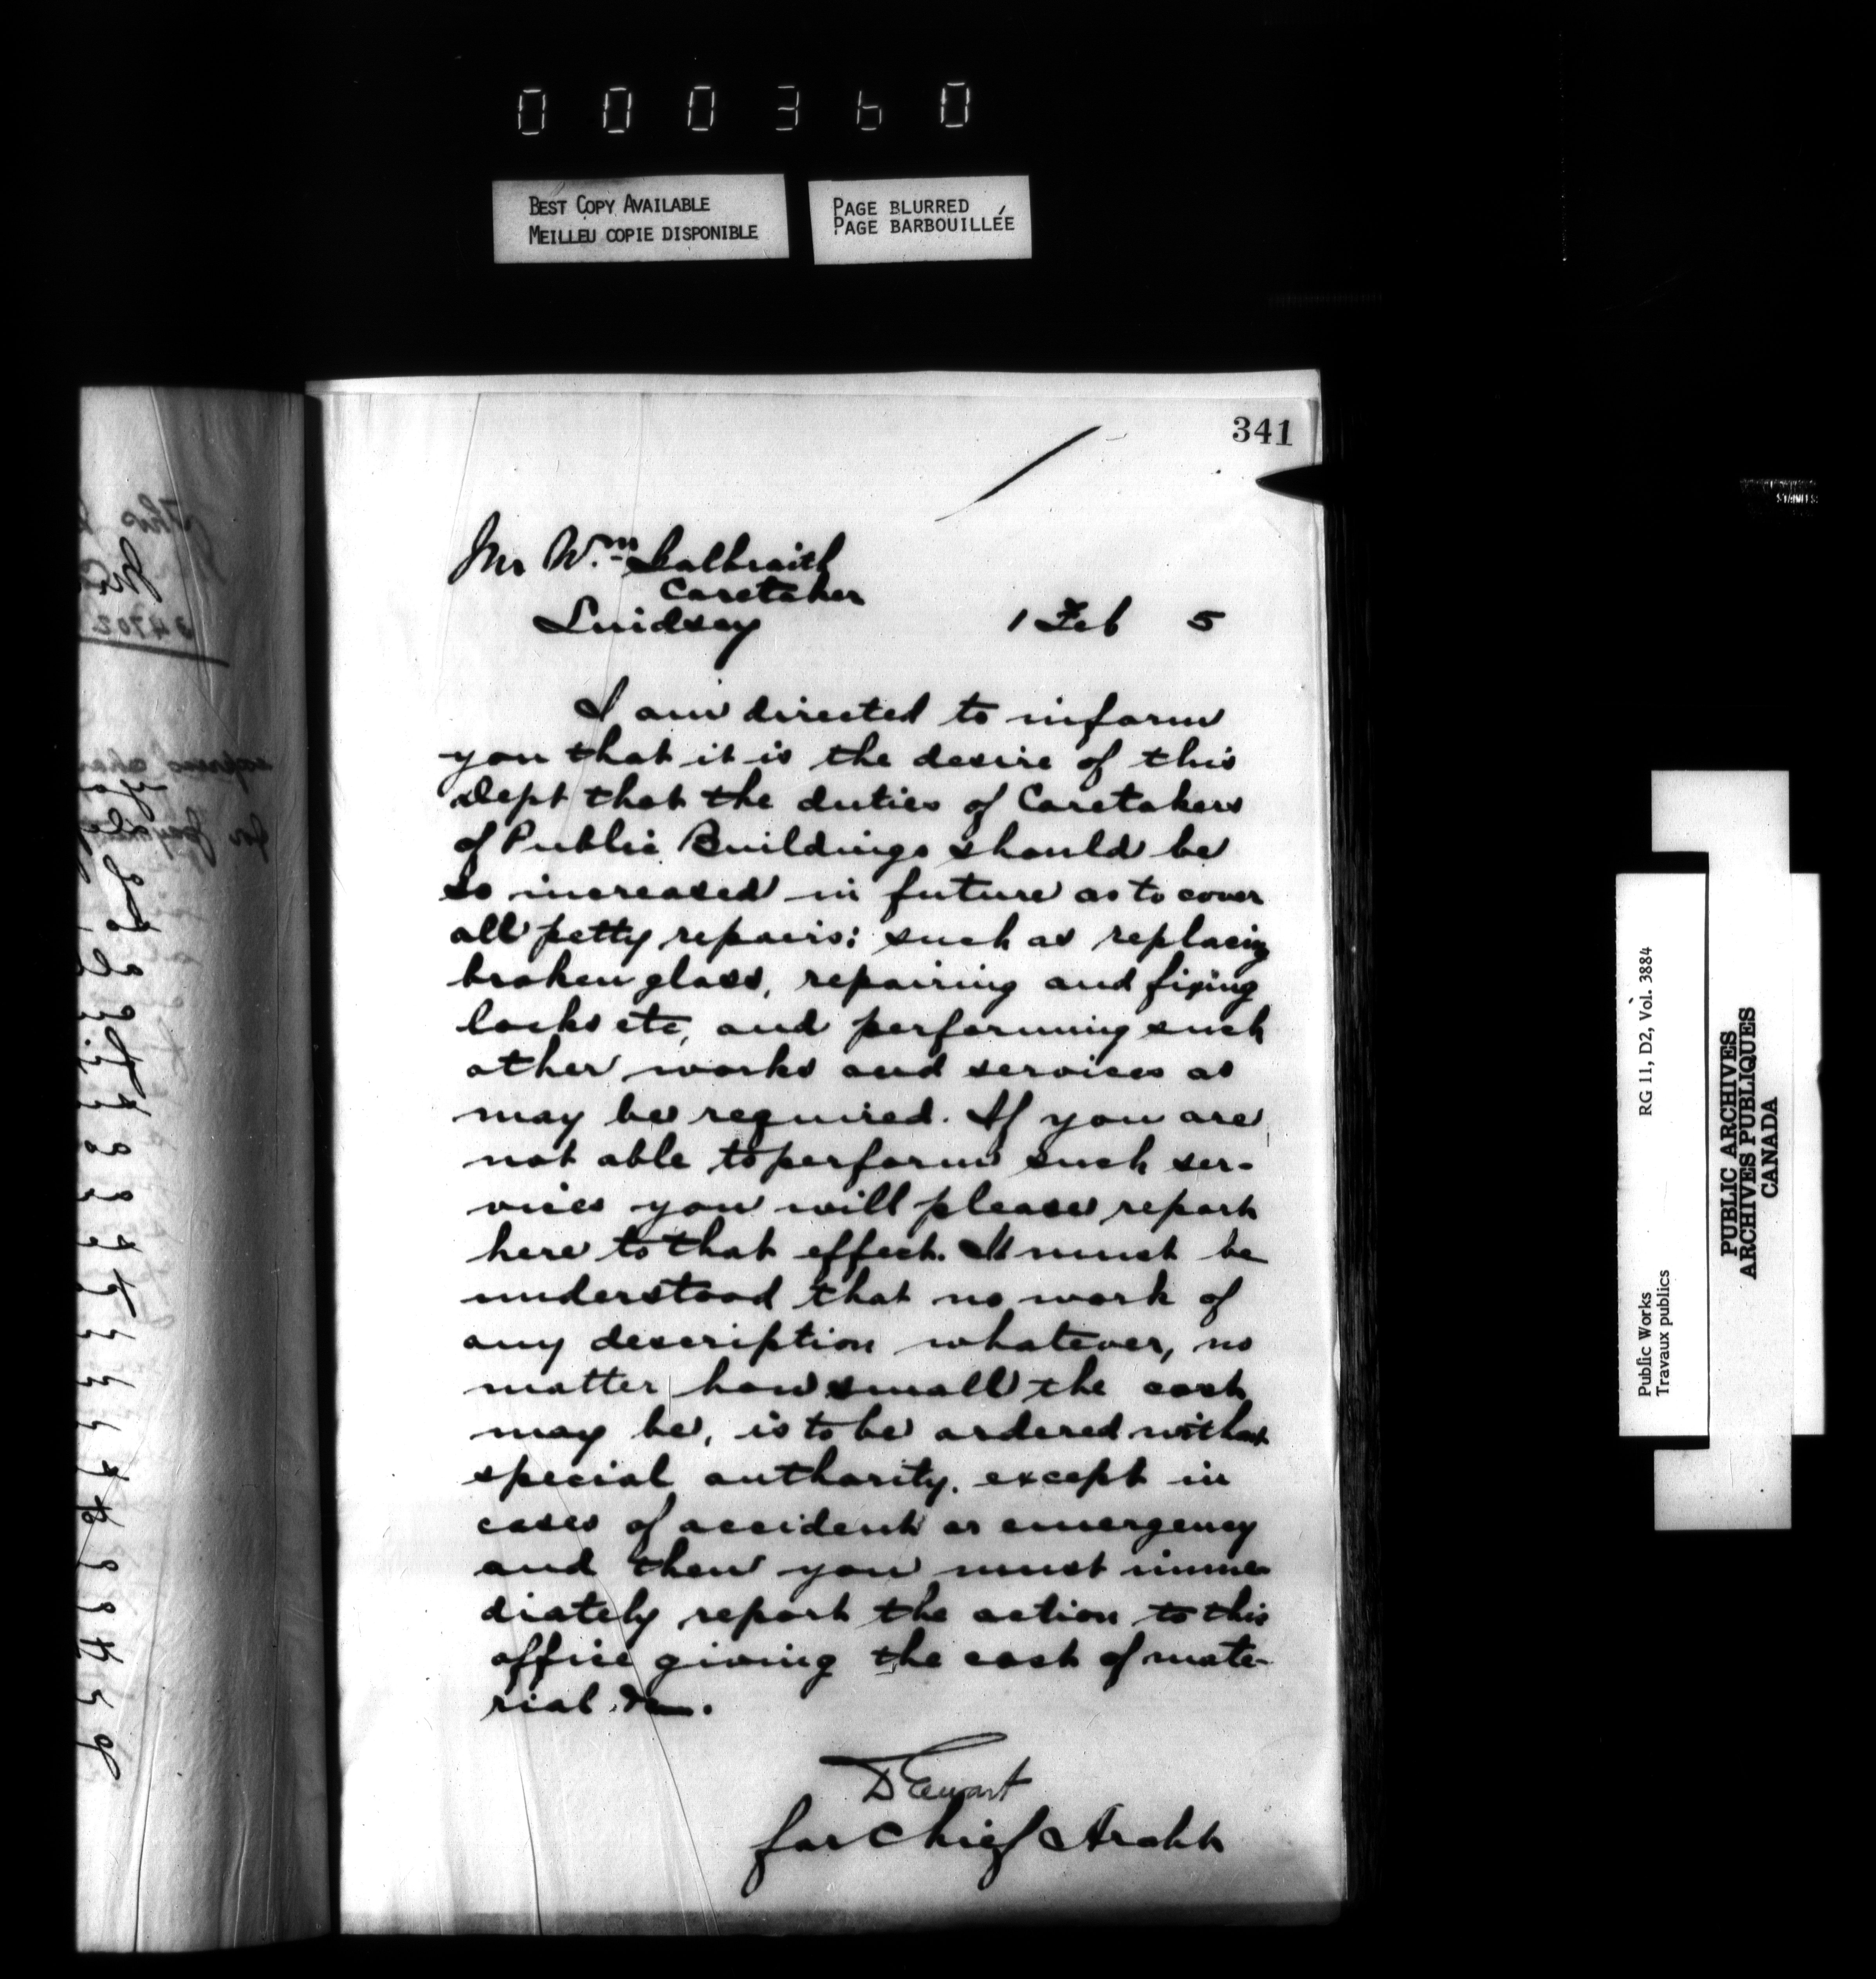 000360
BEST COPY AVAILABLE
MEILLEU COPIE DISPONIBLE
PAGE BLURRED
PAGE BARBOUILLÉE
341
Mr Wm Galbraith
Caretaker
Lindsay 1 Feb 5
I am directed to inform
you that it is the desire of this
Dept that the duties of Caretakers
of Public Buildings should be
so increased in future as to cover
all petty repairs; such as replacing
broken glass, repairing and fixing
locks etc, and performing such
other works and services as
may be required. If you are
not able to perform such ser-
vices you will please report
here to that effect. It must be
understood that no work of
any description whatever, no
matter how small the cost
may be, is to be ordered without
special authority, except in
cases of accident or emergency
and then you must imme-
diately report the action to this
office giving the cost of mate-
rial &c.
D Ewart
for Chief Archt
Public Works
Travaux publics
RG 11, D2, Vol. 3884
PUBLIC ARCHIVES
ARCHIVES PUBLIQUES
CANADA